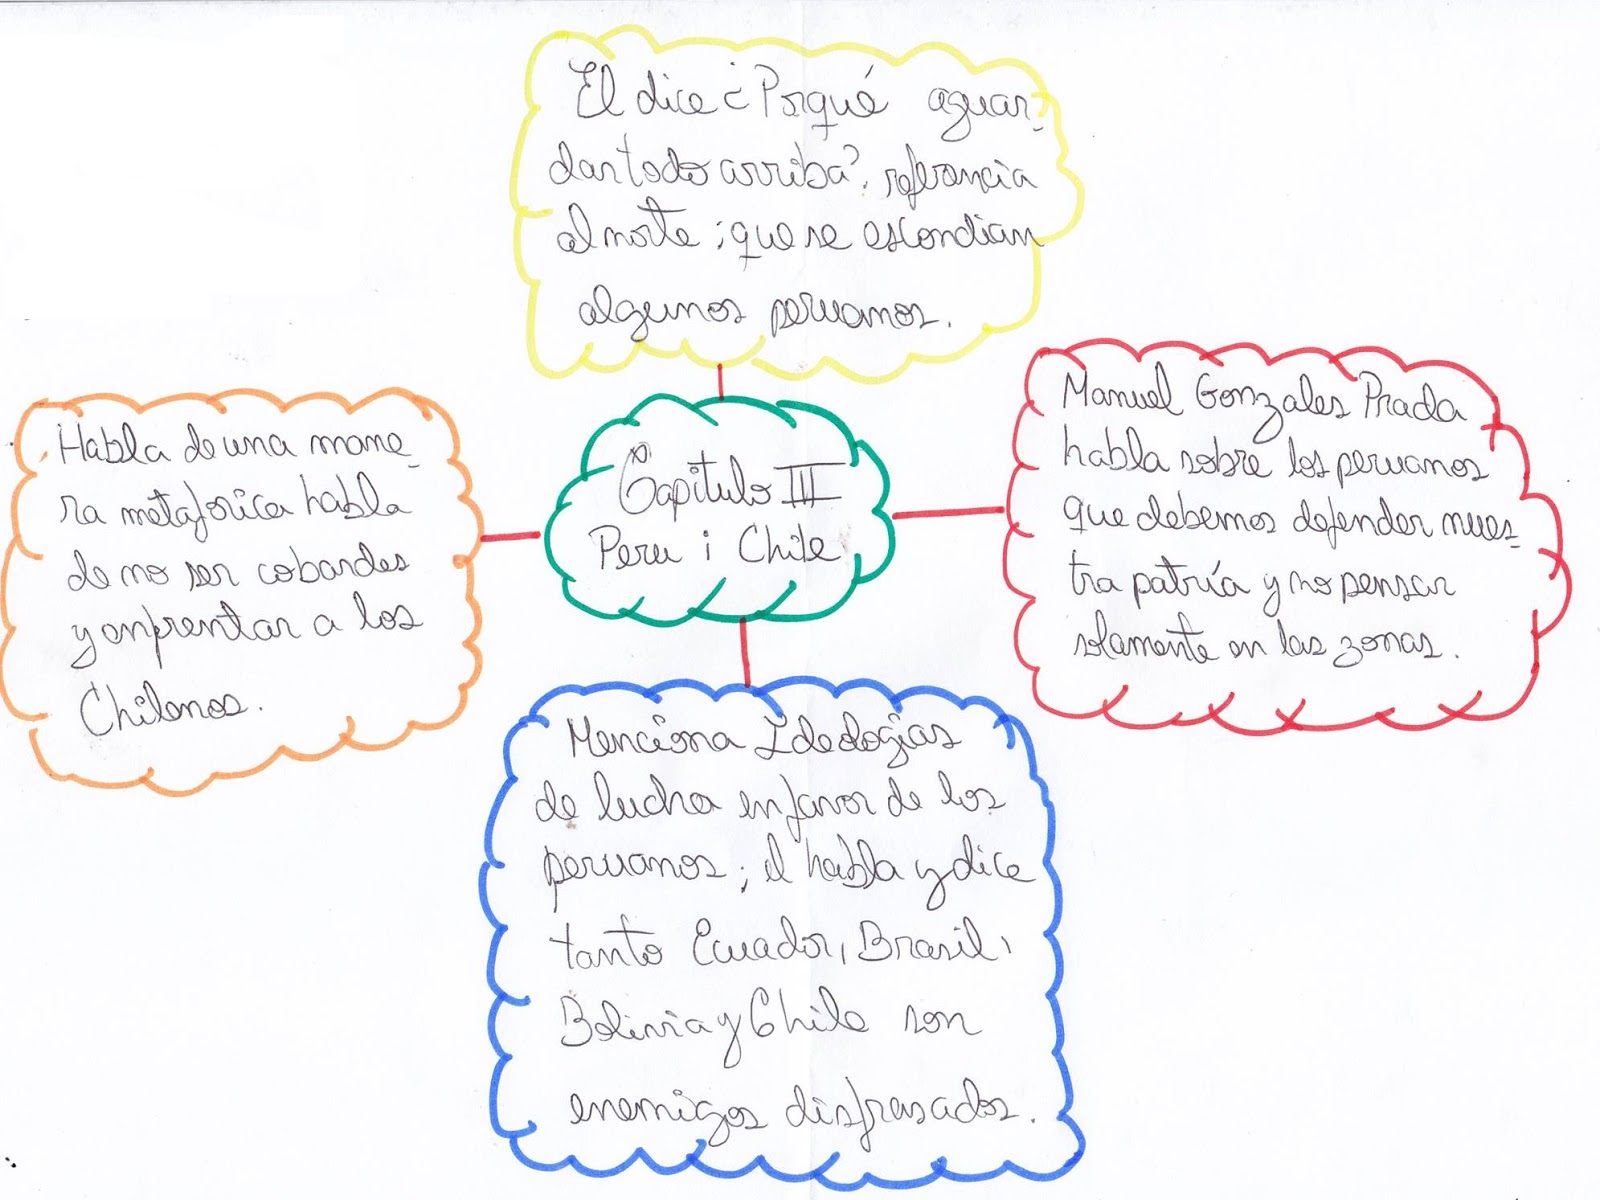 El dice ¿Porqué aguar-
dan todo arriba?, referencia
al norte ; que se escondian
algunos peruanos.
Habla de una mane-
ra metaforica habla
de no ser cobardes
y enfrentar a los
Chilenos.
Capitulo III
Peru i Chile
Manuel Gonzales Prada
habla sobre los peruanos
que debemos defender nues-
tra patría y no pensar
solamente en las zonas.
Menciona Ideologias
de lucha en favor de los
peruanos ; el habla y dice
tanto Ecuador, Brasil,
Bolivia y Chile son
enemigos disfrasados.